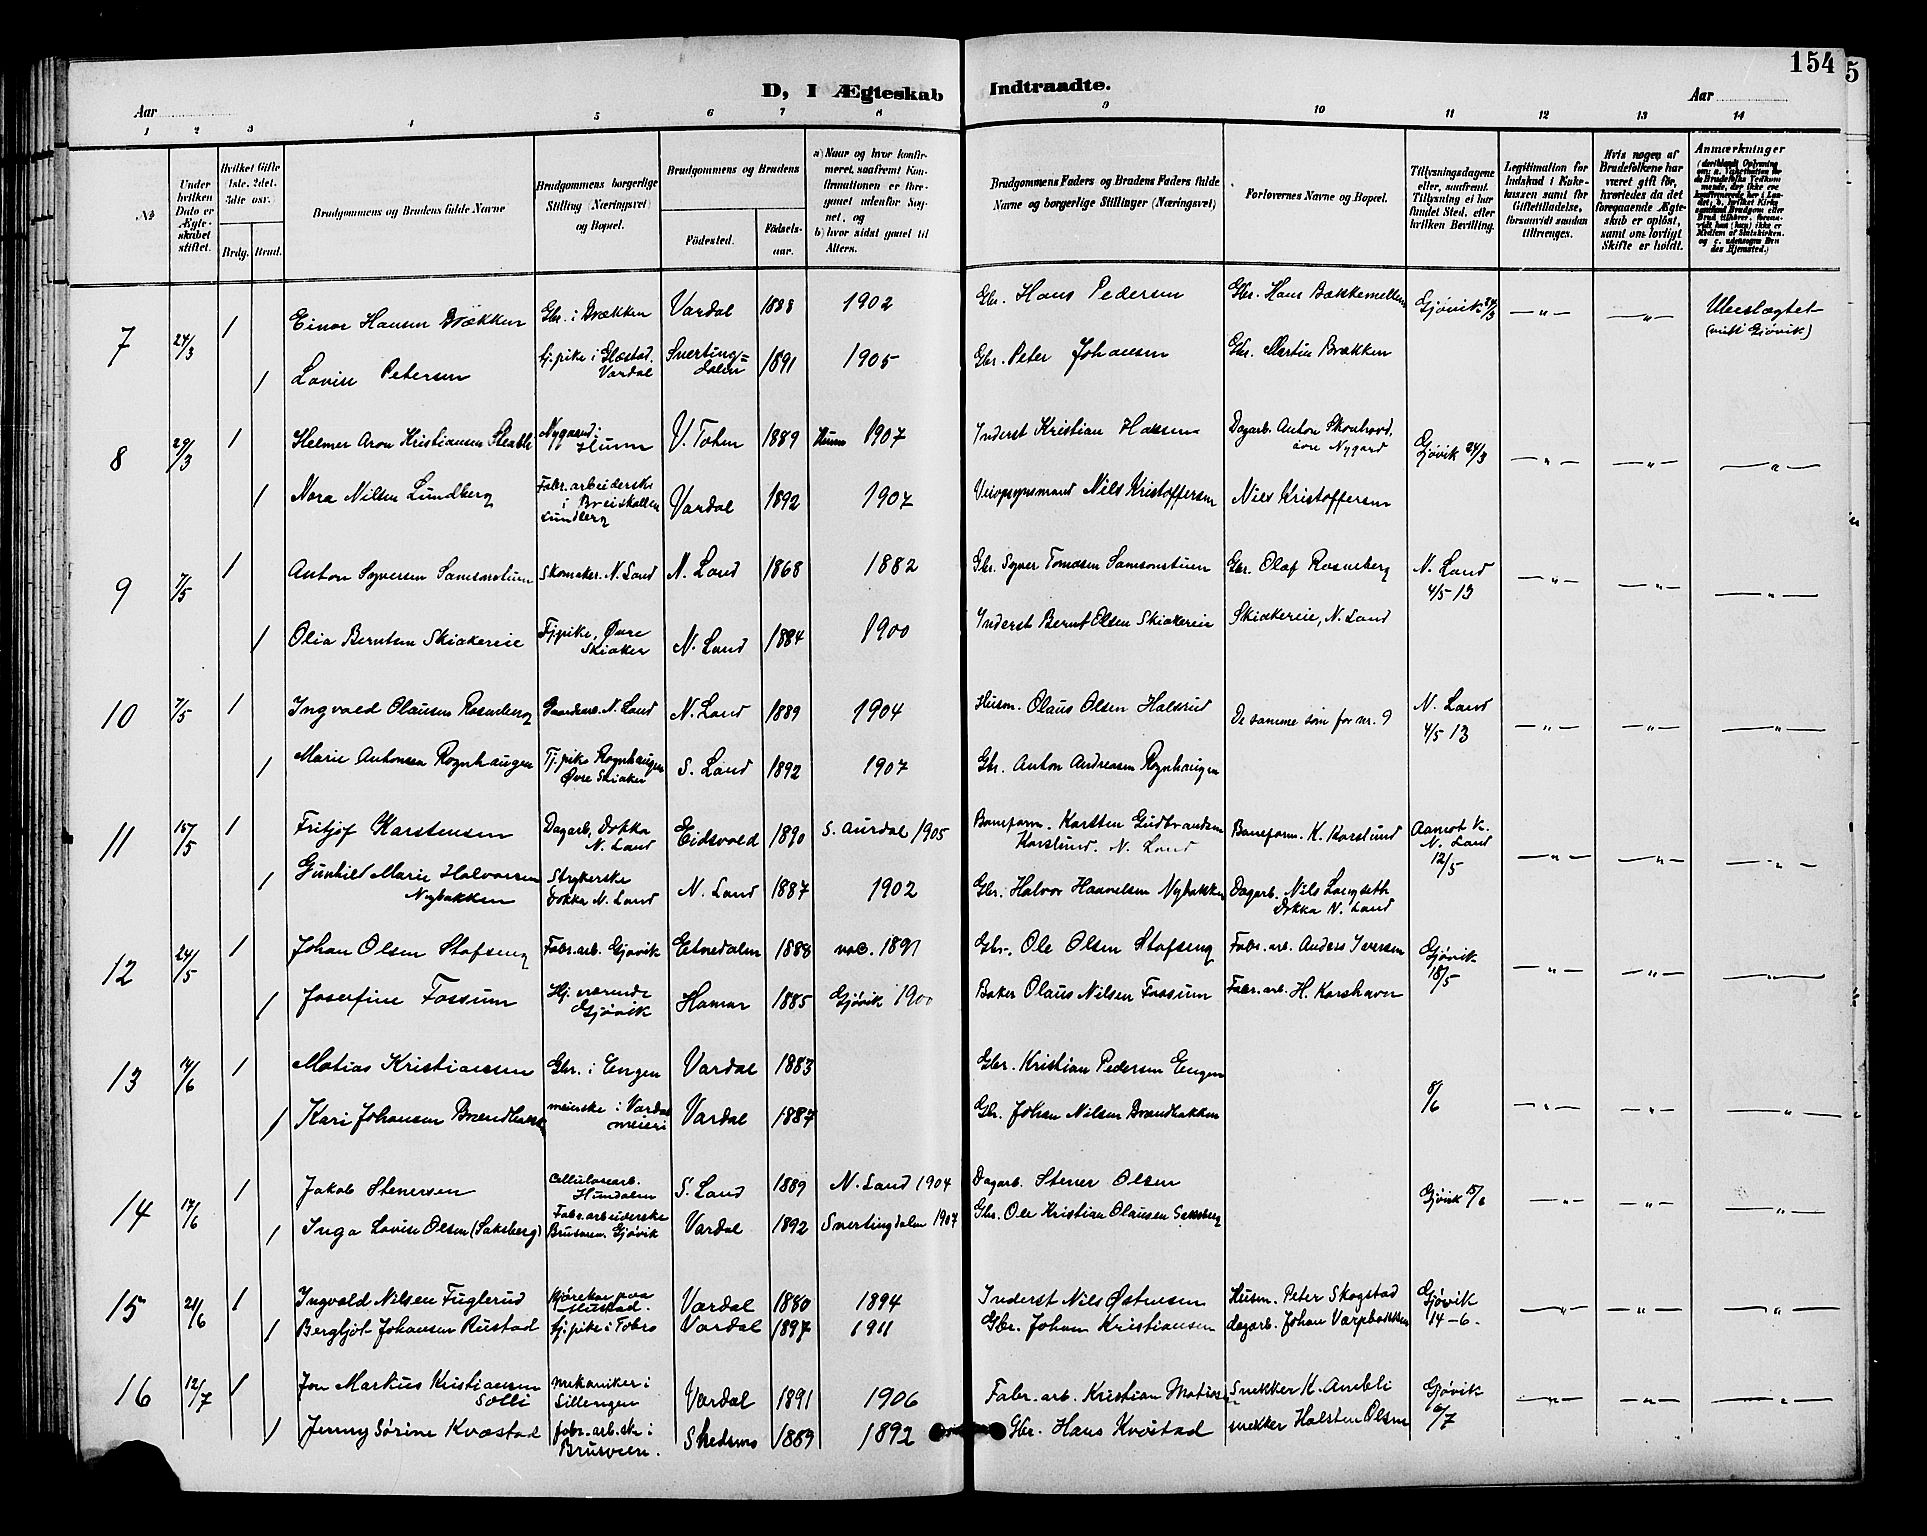 154
5
D, I Ægteskab Indtraadte.
Aar
Aar
1 2 3 4 5 6 7 8 9 10 11 12 13 14
No
Under hvilken Dato er Ægteskabet stiftet.
Hvilket Gifte 1ste. 2det. 3die osv.
Brdg. Brud.
Brudgommens og Brudens fulde Navne
Brudgommens borgerlige Stilling (Næringsvei) og Bopæl.
Brudgommens og Brudens
Födested.
Födselsaar.
a) Naar og hvor konfirmeret, saafremt Konfirmationen er foregaaet udenfor Sognet, og
b) hvor sidst gaaet til Alters.
Brudgommens Faders og Brudens Faders fulde Navne og borgerlige Stillinger (Næringsvei)
Forlovernes Navne og Bopæl.
Tillysningsdagene eller, saafremt Tillysning ei har fundet Sted, efter hvilken Bevilling.
Legitimation for Indskud i Enkekassen samt for Giftetilladelse, forsaavidt saadan tiltrænges.
Hvis nogen af Brudefolkene har været gift för, hvorledes da det foregaaende Ægteskab er oplöst, samt om lovligt Skifte er holdt.
Anmærkninger
7 24/3 1 Einar Hansen Brækken Gbr. i Brækken Vardal 1888 1902 Gbr. Hans Pedersen Gbr. Hans Bækkemellem Gjøvik 24/3 — " — — " — Ubeslægtet
(viet i Gjøvik)
1 Lovise Petersen tj.pike i Glæstad, Vardal Snertingdalen 1891 1905 Gbr. Peter Johansen Gbr. Martin Brækken
8 29/3 1 Helmer Aron Kristiansen Nygaard i Hunn V. Toten 1889 Hunn 1907 Inderst Kristian Hansen Dagarb. Anton Skonhovd, øvre Nygard Gjøvik 24/3 — " — — " — — " —
1 Nora Nilsen Lundberg Fabr. arbeiderske i Breiskallen Lundberg Vardal 1892 1907 Veiopsynsmand Nils Kristoffersen Nils Kristoffersen
9 7/5 1 Anton Syversen Samsonstuen Skomaker. N. Land N. Land 1868 1882 Gbr. Syver Tomasen Samsonstuen Gbr. Olaf Rosneberg N. Land 4/5 13 — " — — " — — " —
1 Olia Berntsen Skiakereie Tjpike, Øvre Skiaker N. Land 1884 1900 Inderst Bernt Olsen Skiakereie Skiakereie, N. Land
10 7/5 1 Ingvald Olausen Rosenberg Gaardsarb. N. Land N. Land 1889 1904 Husm. Olaus Olsen Halsrud De samme som for nr. 9 N. Land 4/5 13 — " — — " — — " —
1 Marie Antonsen Rognhaugen Tj. pike Rognhaugen Øvre Skiaker S. Land 1892 1907 Gbr. Anton Andreasen Rognhaugen
11 15/5 1 Fritjof Karstensen Dagarb, Dokka N. Land Eidsvold 1890 S. Aurdal 1905 Baneform. Karsten Gudbrandsen Korslund. N. Land Baneform. K. Korslund Aamot K. N. Land 12/5 — " — — " — — " —
1 Gunhild Marie Halvorsen Nybakken Strykerske Dokka N. Land N. Land 1887 1902 Gbr. Halvor Haavelsen Nybakken Dagarb. Nils Langseth Dokka N. Land
12 24/5 1 Johan Olsen Stafseng Fabr. arb. Gjøvik Etnedalen 1888 1891 Gbr. Ole Olsen Stafseng Fabr. arb. Anders Iversen Gjøvik 18/5 — " — — " — — " —
1 Josefine Fossum Hj. værende Gjøvik Hamar 1885 Gjøvik 1900 Baker Olaus Nilsen Fossum Fabr. arb. H. Korshavn
13 14/6 1 Matias Kristiansen Gbr. i Engen Vardal 1883 Gbr. Kristian Pedersen Engen 8/6 — " — — " — — " —
1 Kari Johansen Brændbakken meierske i Vardal meieri Vardal 1887 Gbr. Johan Nilsen Brændbakken
14 17/6 1 Jakob Stenersen Cellulosearb. Hunndalen S. Land 1889 N. Land 1904 Dagarb. Stener Olsen Gjøvik 15/6 — " — — " — — " —
1 Inga Lovise Olsen (Saksberg) Fabr. arbeiderske Brusveen, Gjøvik Vardal 1892 Snertingdalen 1907 Gbr. Ole Kristian Olausen Saksberg
15 21/6 1 Ingvald Nilsen Fuglerud kjørekar paa Hustad. Vardal 1880 1894 Inderst Nils Østensen Husm. Peter Skogstad Gjøvik 14-6. — " — — " — — " —
1 Bergljot Johansen Rustad tj. pike i Tobro Vardal 1897 1911 Gbr. Johan Kristiansen dagarb. Johan Varpbakken
16 12/7 1 Jon Markus Kristiansen Solli mekaniker i Sillengen Vardal 1891 1906 Fabr. arb. Kristian Matiasen Snekker K. Amble Gjøvik 6/7 — " — — " — — " —
1 Jenny Sørine Kvæstad fabr. arb.ske i Brusveen. Skedsmo 1889 1892 Gbr. Hans Kvæstad snekker Halsten Olsen